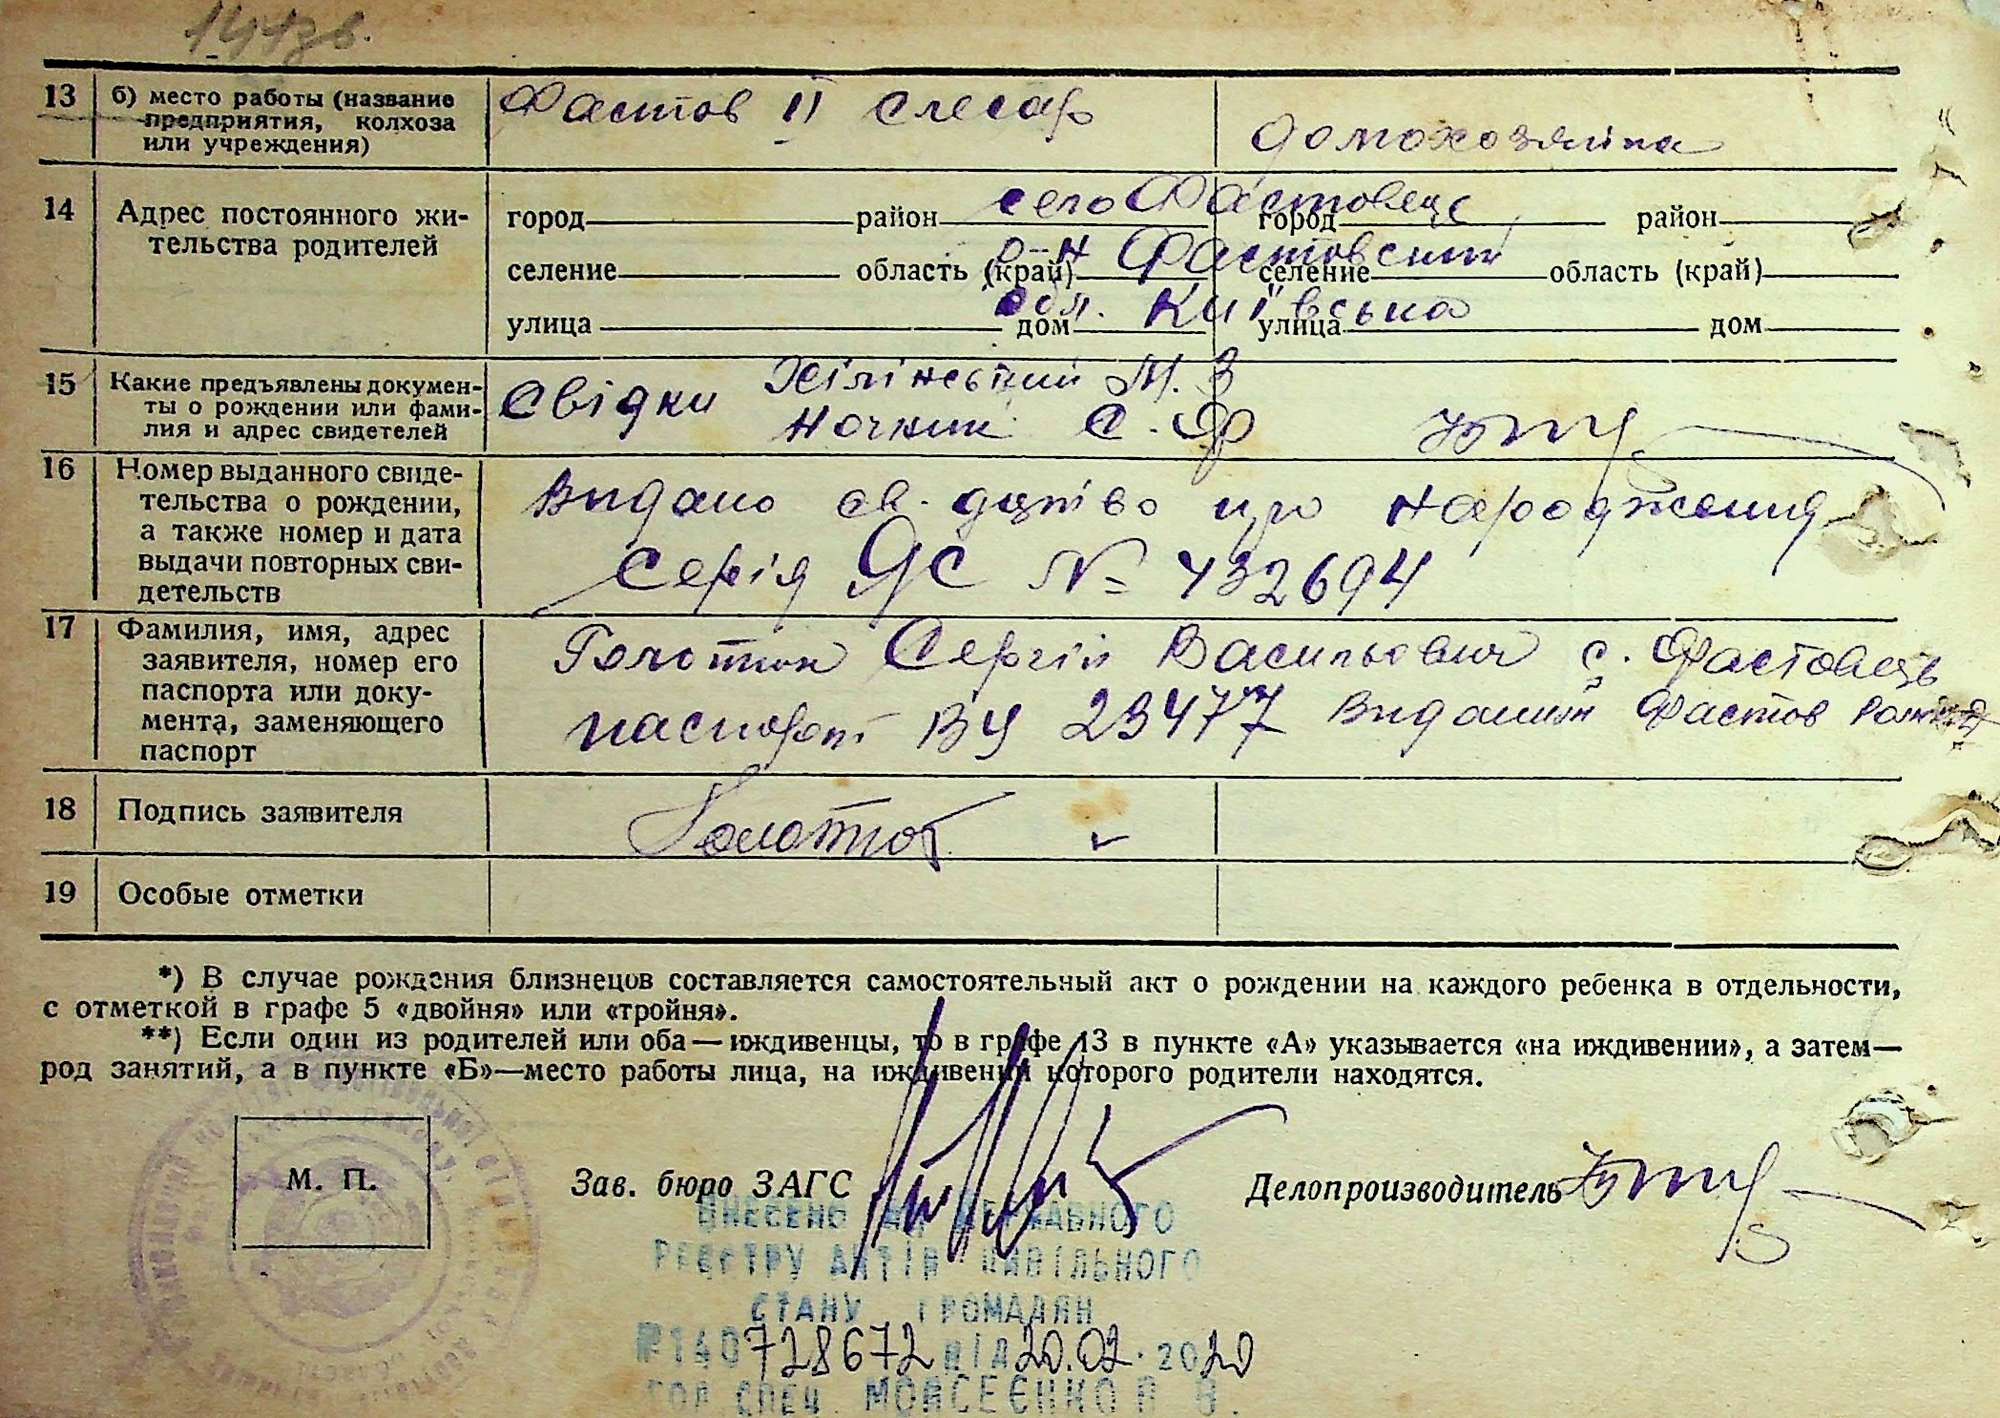 13 б) место работы (название предприятия, колхоза или учреждения)
Фастов II слесар
домохозяйка
14 Адрес постоянного жительства родителей
город район город район
село Фастовець
селение область (край) селение область (край)
р-н Фастовский
улица дом улица дом
обл. Київська
15 Какие предъявлены документы о рождении или фамилия и адрес свидетелей
Свідки Хілінський М. З
Ночний С. Ф
16 Номер выданного свидетельства о рождении, а также номер и дата выдачи повторных свидетельств
Видано св-доцтво про народження
Серія ЯС № 432694
17 Фамилия, имя, адрес заявителя, номер его паспорта или документа, заменяющего паспорт
Голотюк Сергій Васильович с. Фастовець
паспорт ВУ 23477 Виданий Фастов
18 Подпись заявителя
Голотюк
19 Особые отметки
*) В случае рождения близнецов составляется самостоятельный акт о рождении на каждого ребенка в отдельности,
с отметкой в графе 5 «двойня» или «тройня».
**) Если один из родителей или оба — иждивенцы, то в графе 13 в пункте «А» указывается «на иждивении», а затем —
род занятий, а в пункте «Б» — место работы лица, на иждивении которого родители находятся.
М. П.
Зав. бюро ЗАГС
Делопроизводитель
ВНЕСЕНО ДО ДЕРЖАВНОГО
РЕЄСТРУ АКТІВ ЦИВІЛЬНОГО
СТАНУ ГРОМАДЯН
№140728672 від 20.02.2020
ГОЛ СПЕЦ. МОЙСЕЄНКО